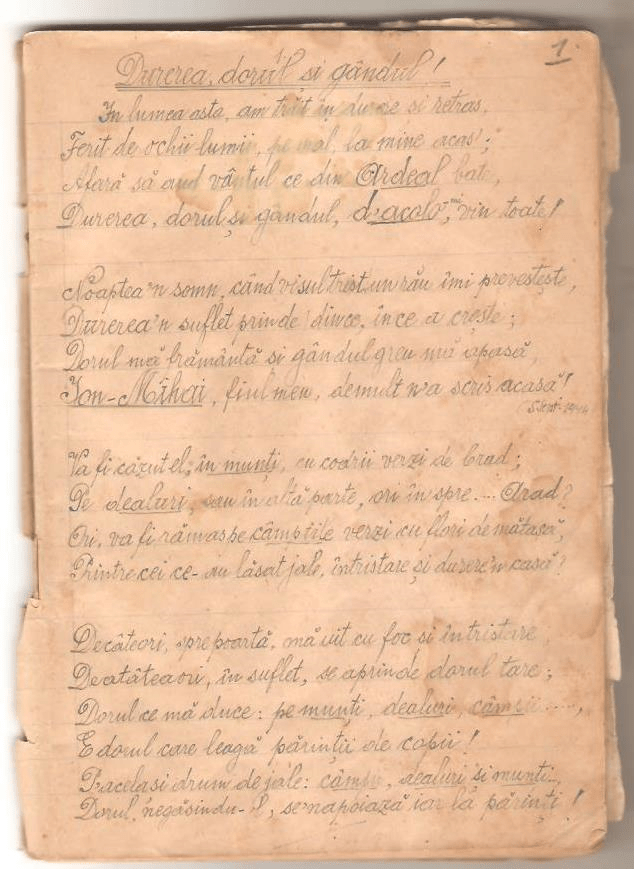 1.
Durerea, dorul si gândul!
In lumea asta, am trăit in durere si retras,
Ferit de ochii lumii, pe mal, la mine acas';
Afară să aud vântul ce din Ardeal bate,
Durerea, dorul și gândul, d'acolo-mi, vin toate!
Noaptea'n somn, când visul trist, un rău îmi prevestește,
Durerea'n suflet prinde dince, în ce a crește;
Dorul mă frământă si gândul greu mă apasă,
Ion-Mihai, fiul meu, demult n'a scris acasă!
5 Sept. 1944
Va fi căzut el, în munți, cu codrii verzi de brad;
Pe dealuri, sau în altă parte, ori în spre.... Arad?
Ori, va fi rămas pe câmpiile verzi cu flori de mătasă,
Printre cei ce-au lăsat jale, întristare și durere'n casă?
Decâteori, spre poartă, mă uit cu foc si întristare
Deatâteaori, în suflet, se aprinde dorul tare;
Dorul ce mă duce: pe munți, dealuri, câmpii....,
E dorul care leagă părinții de copii!
P'acelasi drum de jale: câmpu, dealuri si munti..,
Dorul, negăsindu-l, se'napoiază iar la părinți!